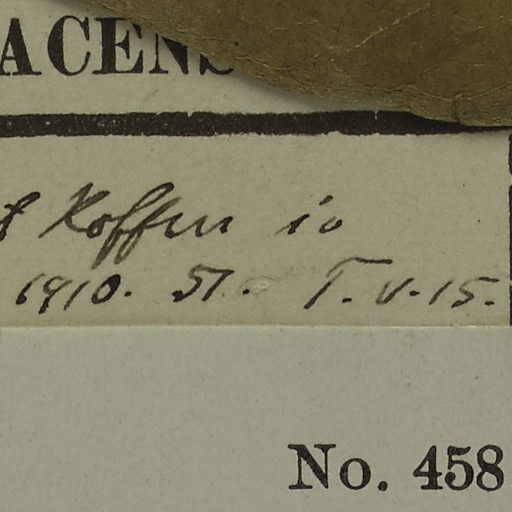 ACENS
Koffen in
1910. 51. T. V. 15.
No. 458